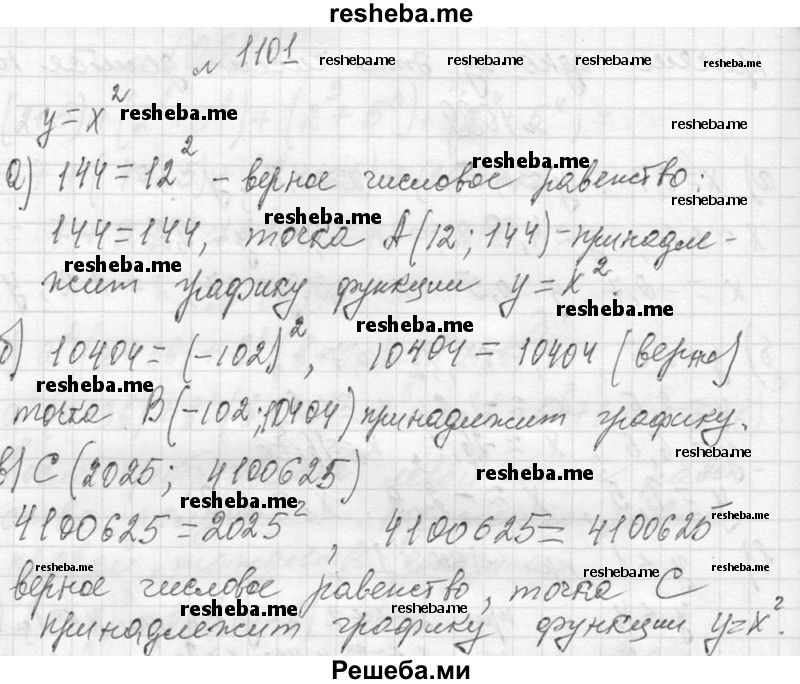 resheba.me
№ 1101 resheba.me resheba.me resheba.me resheba.me
y = x² resheba.me resheba.me
а) 144 = 12² - верное числовое равенство: resheba.me resheba.me
144 = 144, точка A(12; 144) - принадле- resheba.me
resheba.me
жит графику функции y = x². resheba.me
resheba.me
б) 10404 = (-102)², 10404 = 10404 (верно)
resheba.me
точка B(-102; 10404) принадлежит графику.
resheba.me
в) C(2025; 4100625) resheba.me
resheba.me
4100625 = 2025², 4100625 = 4100625 - resheba.me
resheba.me resheba.me resheba.me
верное числовое равенство, точка C
resheba.me resheba.me resheba.me
принадлежит графику функции y=x².
Решеба.ми